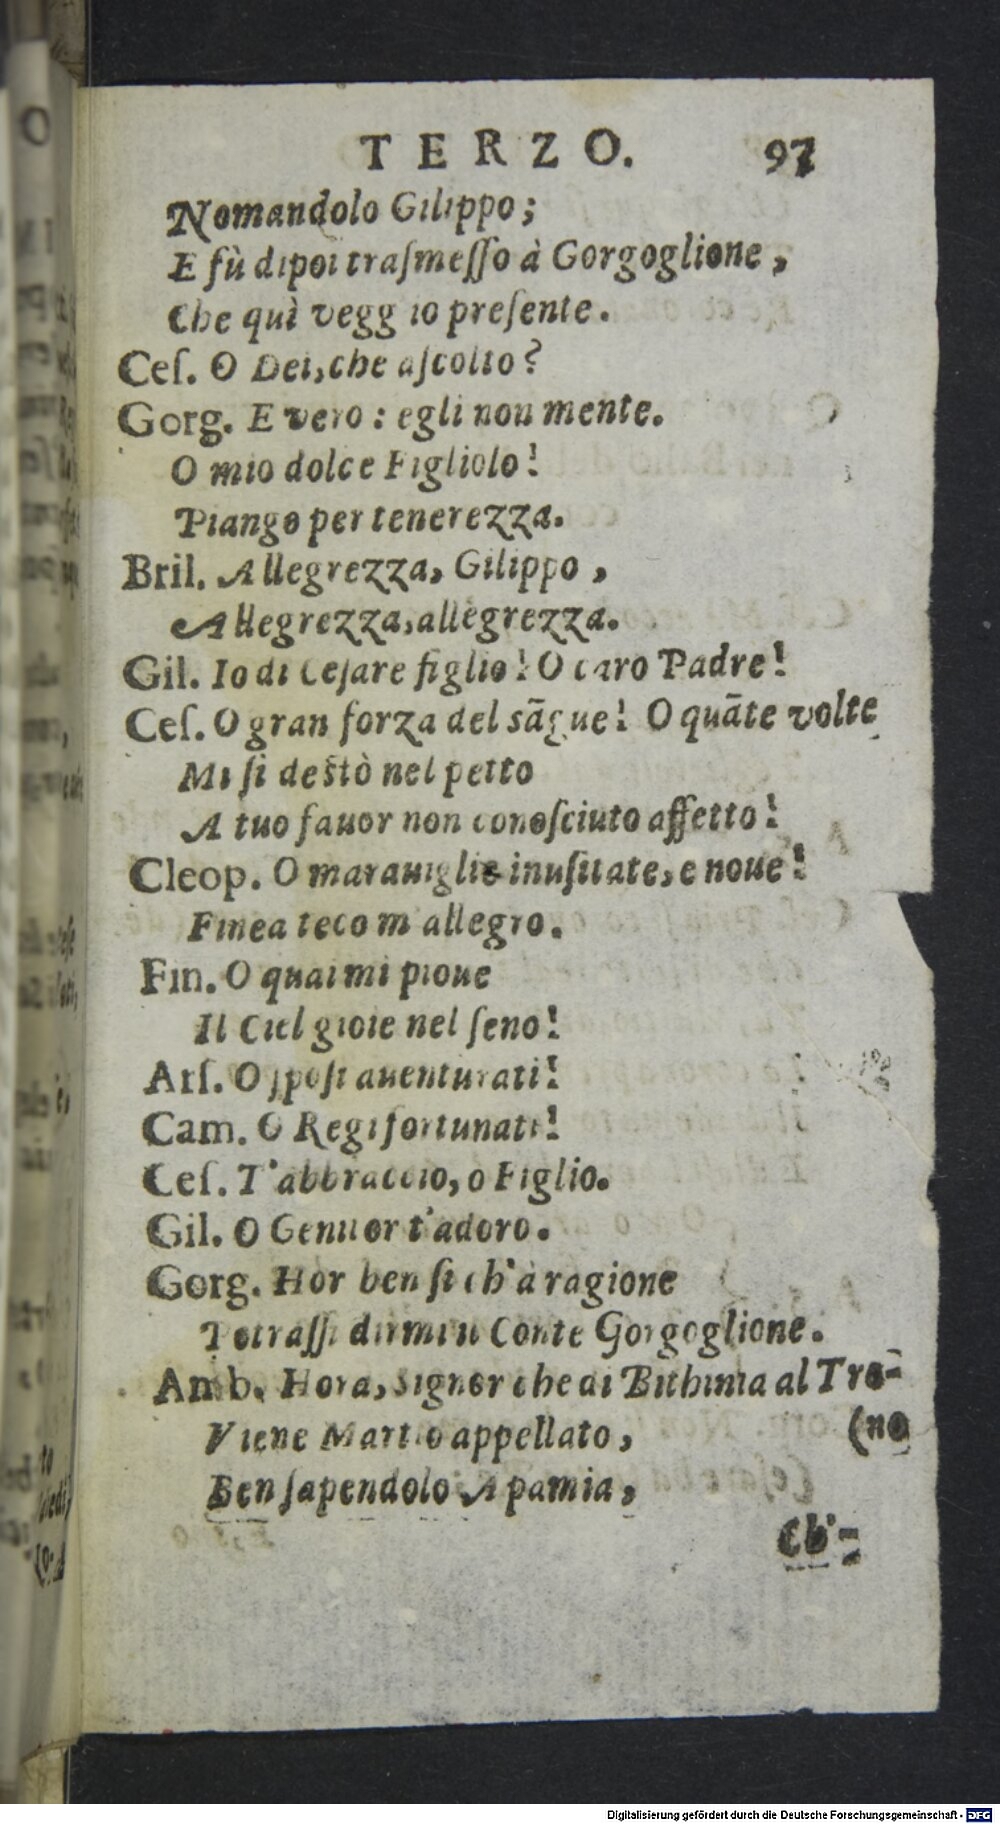 TERZO. 97
Nomandolo Gilippo;
E fù dipoi traſmeſſo à Gorgoglione,
Che quì vegg io preſente.
Ceſ. O Dei, che aſcolto?
Gorg. E vero: egli non mente.
O mio dolce Figliolo!
Piango per tenerezza.
Bril. Allegrezza, Gilippo,
Allegrezza, allegrezza.
Gil. Io di Ceſare figlio! O caro Padre!
Ceſ. O gran forza del sãgue! O quãte volte
Mi ſi deſtò nel petto
A tuo fauor non conoſciuto affetto!
Cleop. O marauiglie inuſitate, e noue!
Finea teco m allegro.
Fin. O quai mi pioue
Il Ciel gioie nel ſeno!
Arſ. O ſpoſi auenturati!
Cam. O Regi fortunati!
Ceſ. T'abbraccio, o Figlio.
Gil. O Genitor t'adoro.
Gorg. Hor ben ſi ch'à ragione
Potraſſi dirmi il Conte Gorgoglione.
Amb. Hora, Signor che di Bithinia al Tro-
Viene Martio appellato, (no
Ben ſapendolo Apamia,
Ch'-
Digitalisierung gefördert durch die Deutsche Forschungsgemeinschaft - DFG